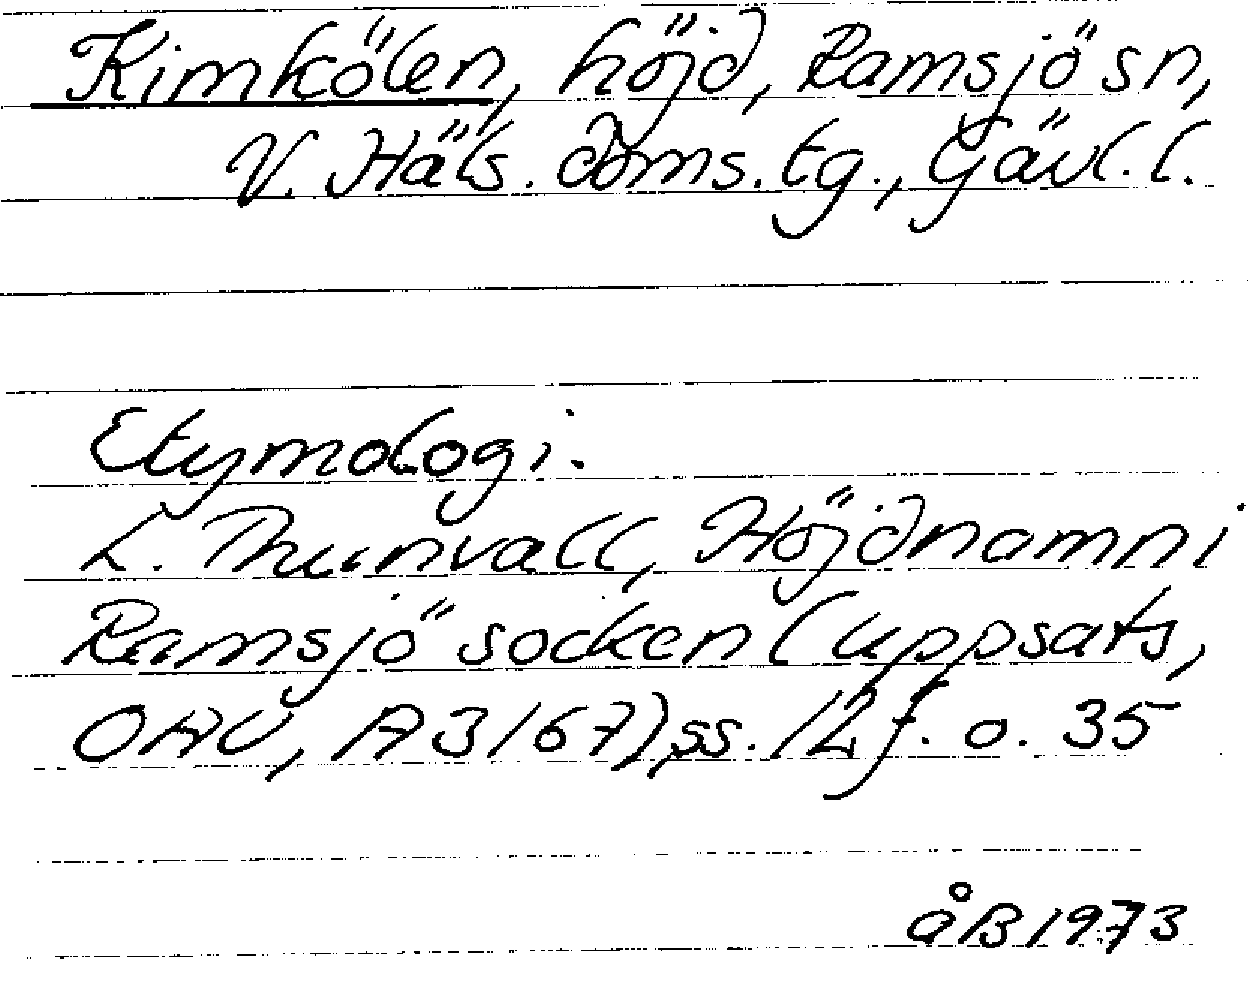 Kimkölen, höjd, Ramsjö sn,
V. Häls. doms. tg., Gävl. l.
Etymologi.
L. Thunvall, Höjdnamn i
Ramsjö socken (uppsats,
OAU, A 3167), ss. 12 f. o. 35
åB 1973